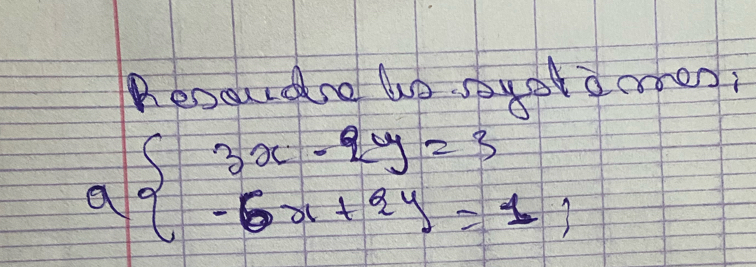 Resoudre les systèmes;
a { 3x - 2y = 3
-6x + 2y = 1;